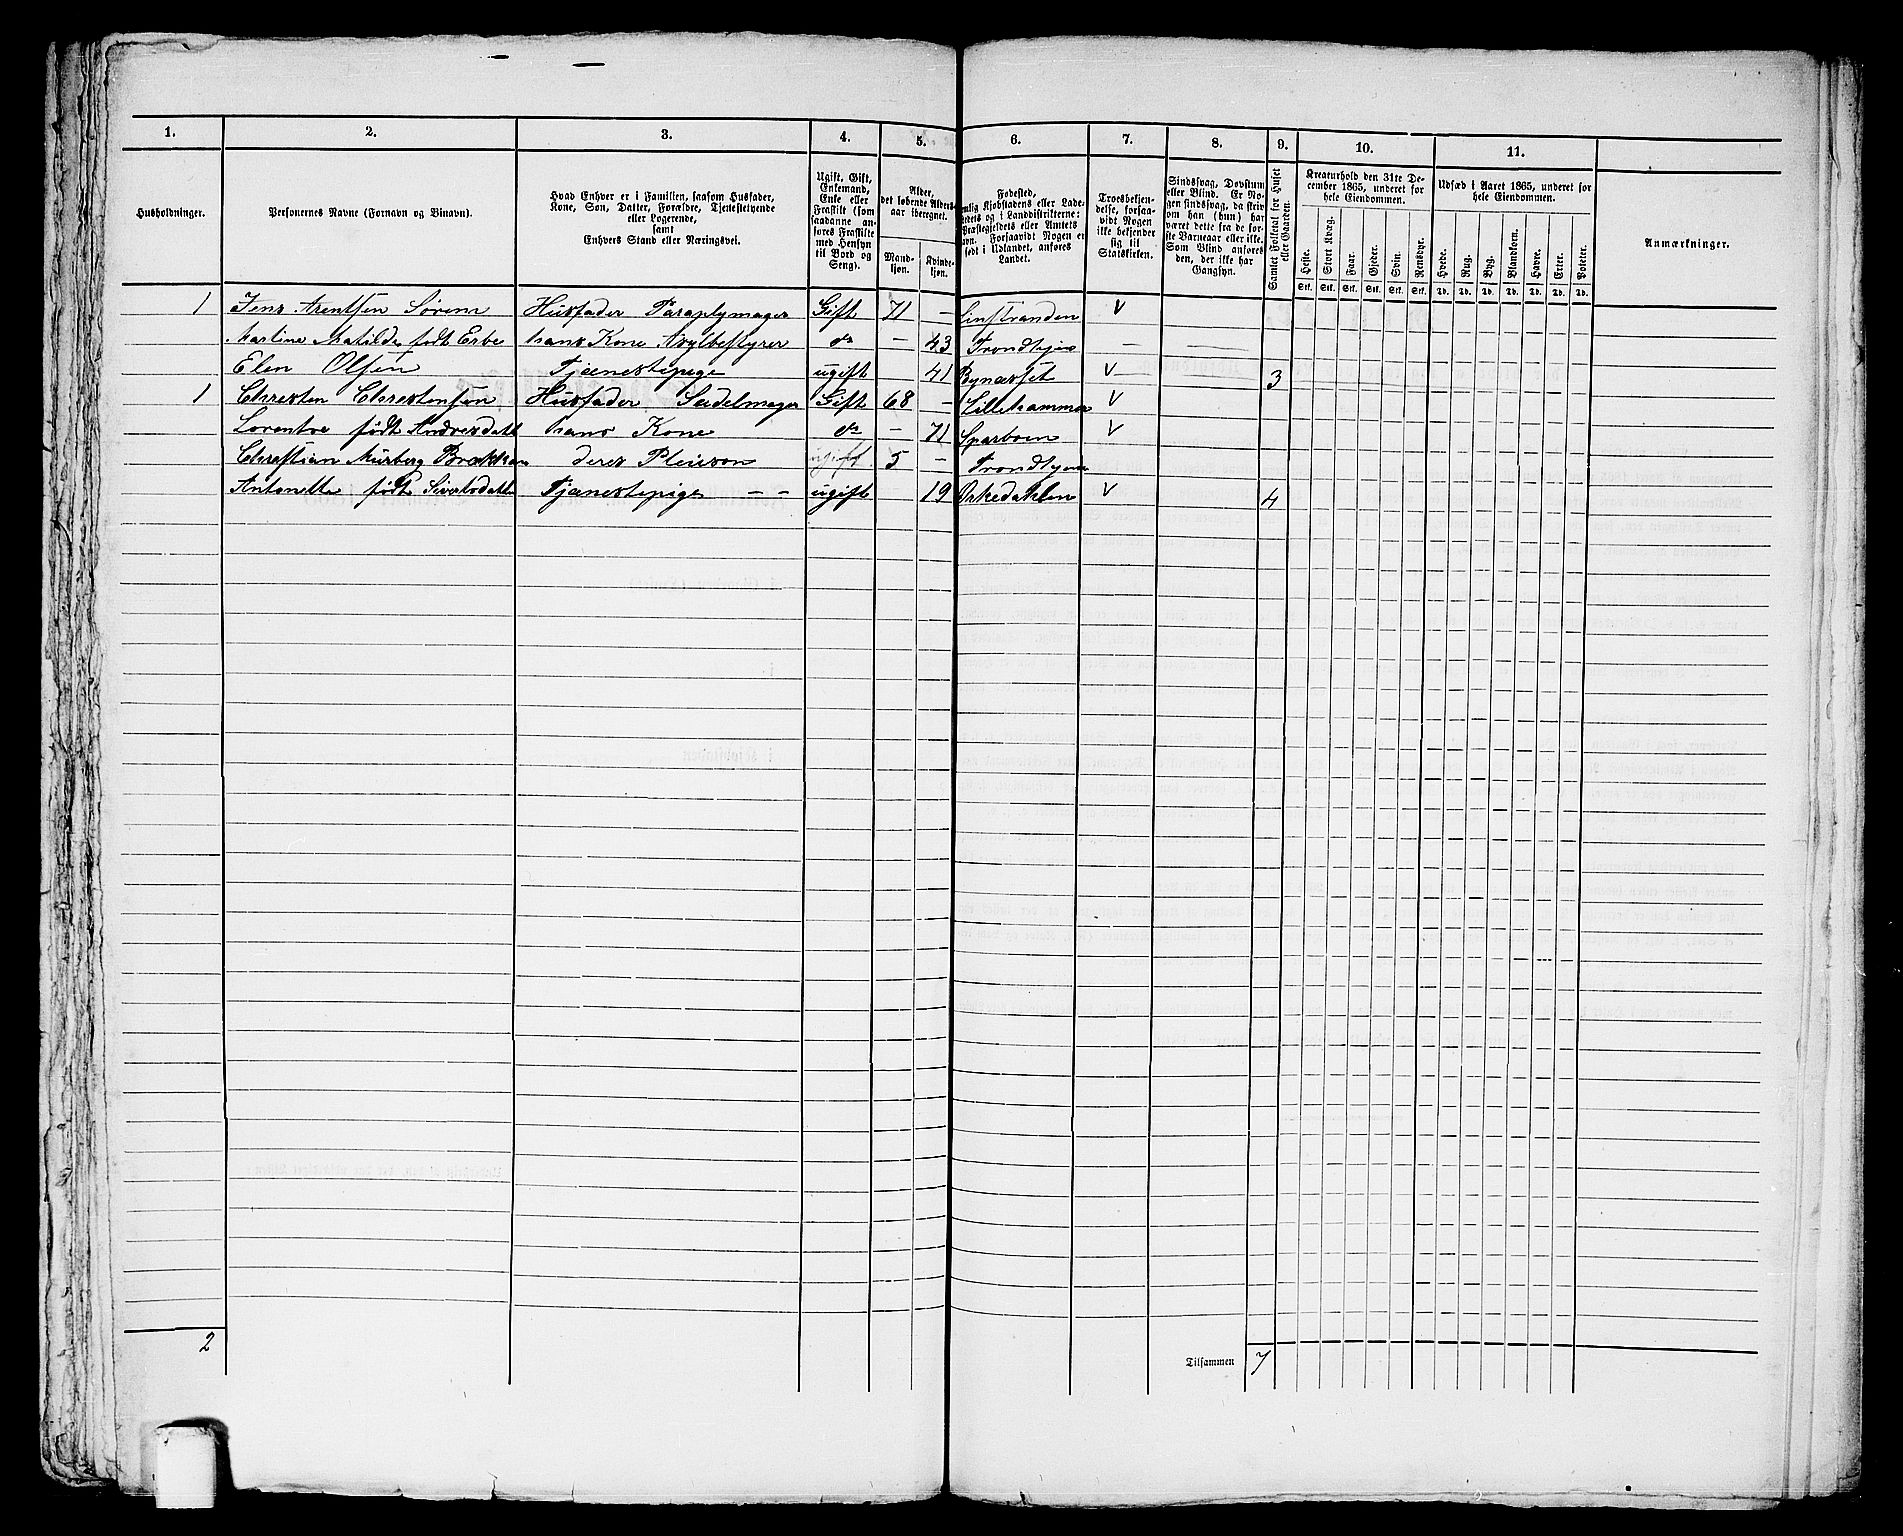 1. 2. 3. 4. 5. 6. 7. 8. 9. 10. 11.
Husholdninger.
Personernes Navne (Fornavn og Binavn).
Hvad Enhver er i Familien, saasom Husfader,
Kone, Søn, Datter, Forældre, Tjenestetyende
eller Logerende,
samt
Enhvers Stand eller Næringsvei.
Ugift, Gift,
Enkemand,
Enke eller
Fraskilt (som
saadanne an-
føres Fraskilte
med Hensyn
til Bord og
Seng).
Alder,
det løbende Alders-
aar iberegnet.
Mand-
kjøn.
Kvinde-
kjøn.
Fødested,
nemlig Kjøbstadens eller Lade-
stedets og i Landdistrikterne:
Præstegjeldets eller Amtets
Navn. Forsaavidt Nogen er
født i Udlandet, anføres
Landet.
Troesbekjen-
delse, forsaa-
vidt Nogen
ikke bekjender
sig til
Statskirken.
Sindssvag, Døvstum
eller Blind. Er No-
gen sindssvag, da skriv
om han (hun) har
været dette fra de før-
ste Barneaar eller ikke.
Som Blind anføres
den, der ikke har
Gangsyn.
Samlet Folketal for Huset
eller Gaarden.
Kreaturhold den 31te De-
cember 1865, underet for
hele Eiendommen.
Heste. Stort Kvæg. Faar. Gjeder. Svin. Rensdyr.
Stk. Stk. Stk. Stk. Stk. Stk.
Udsæd i Aaret 1865, underet for
hele Eiendommen.
Hvede. Rug. Byg. Blandkorn. Havre. Erter. Poteter.
Td. Td. Td. Td. Td. Td. Td.
Anmærkninger.
1 Jens Arentsen Sørem Husfader Paraplymager Gift 71 — Linstranden V
Marline Matilde født Erbe hans Kone Asylbestyrer do — 43 Trondhjem — —
Elen Olsen Tjænestepige ugift 41 Bynæsset V 3
1 Christen Christensen Husfader Sadelmager Gift 68 — Lillehammer V
Lorentse født Andresdatt hans Kone do — 71 Sparboen V
Christian Murberg Brækkan deres Pleiesøn ugift 5 — Trondhjem
Antonette født Sivertsdatte Tjænestepige — — ugift 19 Orkedahlen V 4
2 Tilsammen 7